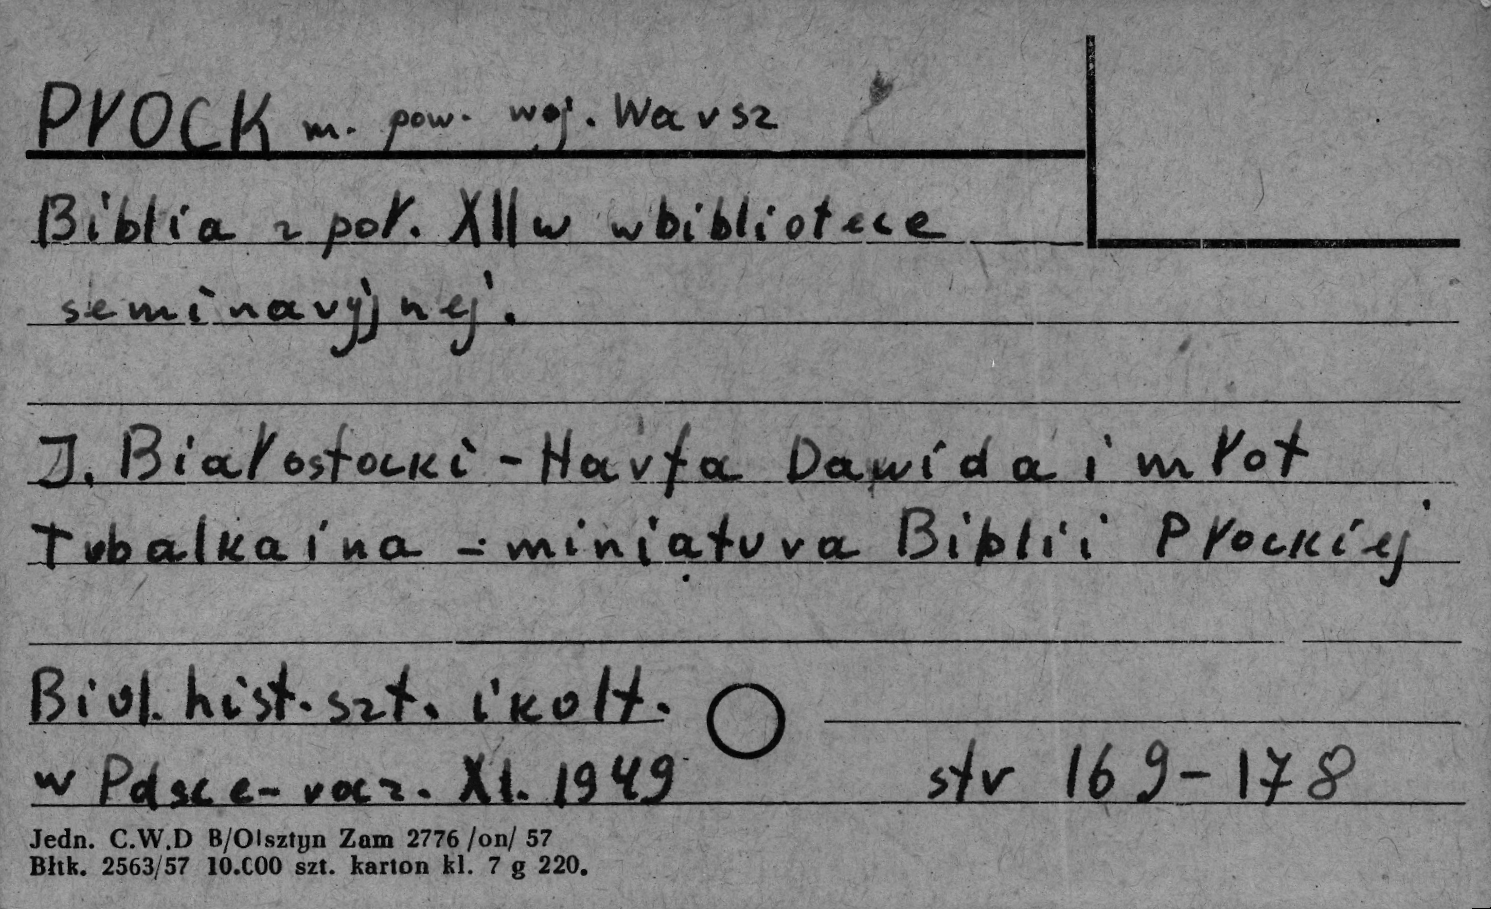 PŁOCK m. pow. woj. Warsz
Biblia z poł. XII w w bibliotece
seminaryjnej.
J. Białostocki - Harfa Dawida i młot
Tubalkaina - miniatura Biblii Płockiej
Biul. hist. szt. i kult.
w Polsce - rocz. XI. 1949 str 169-178
Jedn. C.W.D B/Olsztyn Zam 2776 /on/ 57
Błtk. 2563/57 10.000 szt. karton kl. 7 g 220.